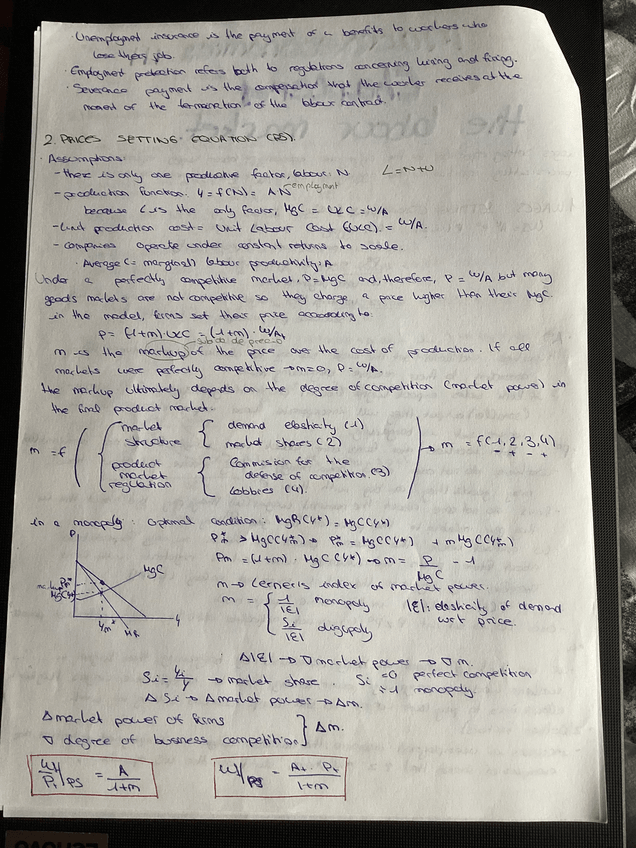 · Unemployment insurance is the payment of a benefits to workers who
lose theirs job.
· Employment protection refers both to regulations concerning hiring and firing.
· Severance payment is the compensation that the worker receives at the
moment of the termination of the labour contract.
2. PRICES SETTING EQUATION (PS).
· Assumptions:
- there is only one productive factor, labour: N L=N+U
- production function. Y = f(N) = AN employment
because L is the only factor, MgC = ULC = W/A
- Unit production cost = Unit Labour Cost (ULC) = W/A.
- companies operate under constant returns to scale.
· Average (= marginal) labour productivity: A
Under a perfectly competitive market, P=MgC and, therefore, P = W/A but many
goods markets are not competitive so they charge a price higher than their MgC.
in the model, firms set their price according to:
P = (1+m)·ULC = (1+m) · W/A,
subida de precio
m is the markup of the price over the cost of production. If all
markets were perfectly competitive → m=0, P=W/A.
the markup ultimately depends on the degree of competition (market power) in
the final product market.
m = f ( { market structure { demand elasticity (1)
market shares (2)
product market regulation { Commision for the
defense of competition (3)
Lobbies (4). ) → m = f(1, 2, 3, 4)
- + - +
In a monopoly: optimal condition: MgR(Y*) = MgC(Y*)
P*m > MgC(Y*m) → P*m = MgC(Y*) + m MgC(Y*m)
Pm = (1+m) · MgC(Y*) → m = P/MgC - 1
m → Lerner's index of market power.
m = { 1/|E| monopoly
Si/|E| oligopoly
|E|: elasticity of demand
wrt price.
P
MgC
P*m
MgC(Y*)
Ym*
MR
Y
Δ|E| → ∇ market power → ∇ m.
Si = Yi/Y → market share. Si =0 perfect competition
=1 monopoly.
Δ Si → Δ market power → Δm.
Δ market power of firms
∇ degree of business competition } Δm.
W/Pt|PS = A/1+m
W|PS = At · Pt/1+m